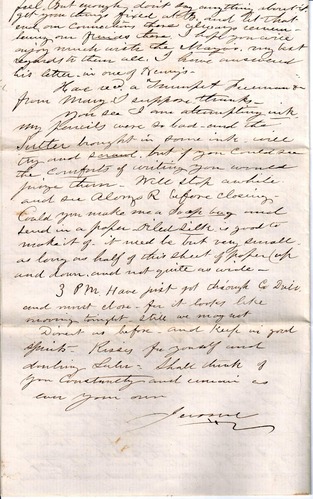 feel. But enough, don't say anything about it
get your things fixed at and let that
end, our Connection there always remem-
bering our Kisses there. I hope you will
enjoy much with the Mayor, my best
regards to them all. I have answered
his letter in one of Henry's.
Has recd a Trumpet
from Mary I suppose, thanks.
You see I am attempting ink
my Pencils were so bad and the
Sutler brought in some ink will
try and send, but if you could see
the comforts of writing you would
Will stop awhile
and see Alonzo R before closing.
Could you make me a soap bag and
send in a paper. Oiled Silk is good to
make it of. it need be but very small
as long as half of this sheet of paper (up
and down, and not quite as wide -
3 P.M. Have just got through Co Drill
and must close. for it looks like
moving tonight. Still we may not
Direct as before. and keep in good
spirits. Kisses for yourself and
darling Shall think of
you Constantly and remain as
ever your own
Jerome